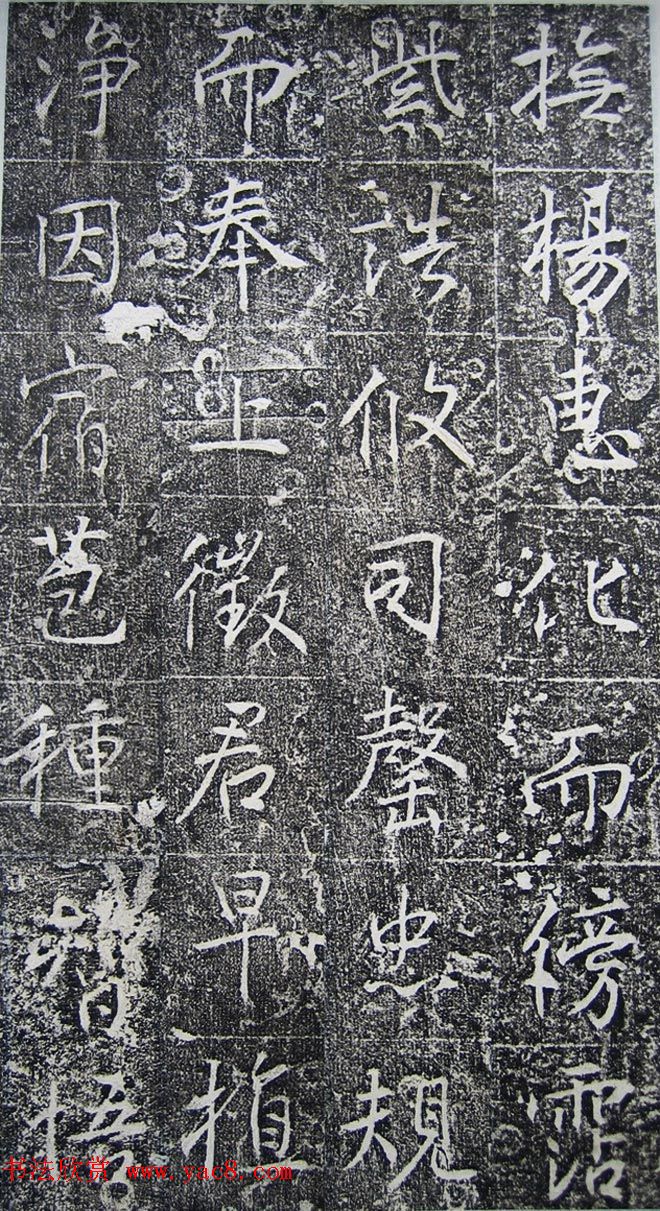 撫楊惠化而傍霑
紫誥攸司罄忠規
而奉上徵君早植
淨因宿苞種智悟
书法欣赏 www.yac8.com